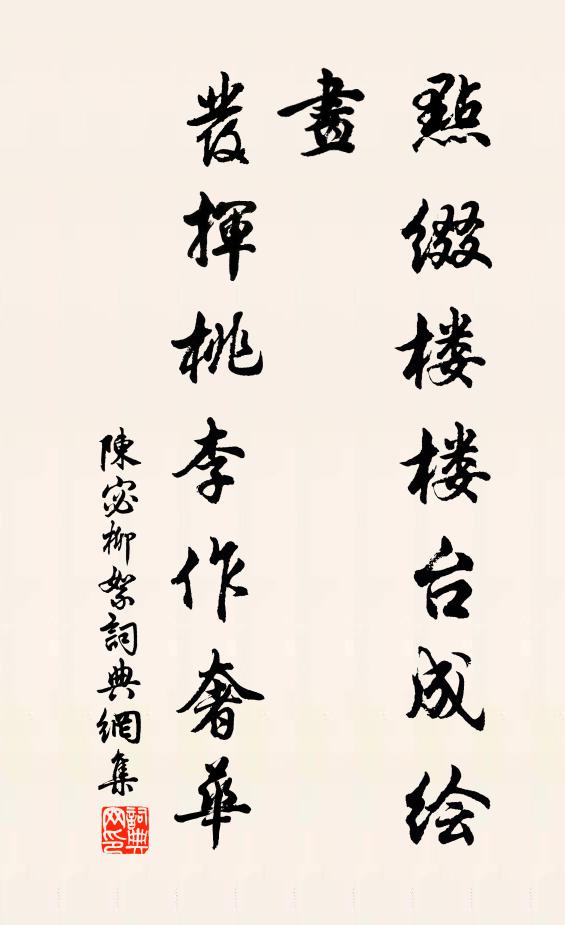 點缀楼楼台成绘
畫
發揮桃李作奢華
陳宓柳絮詞典網集
詞典網印